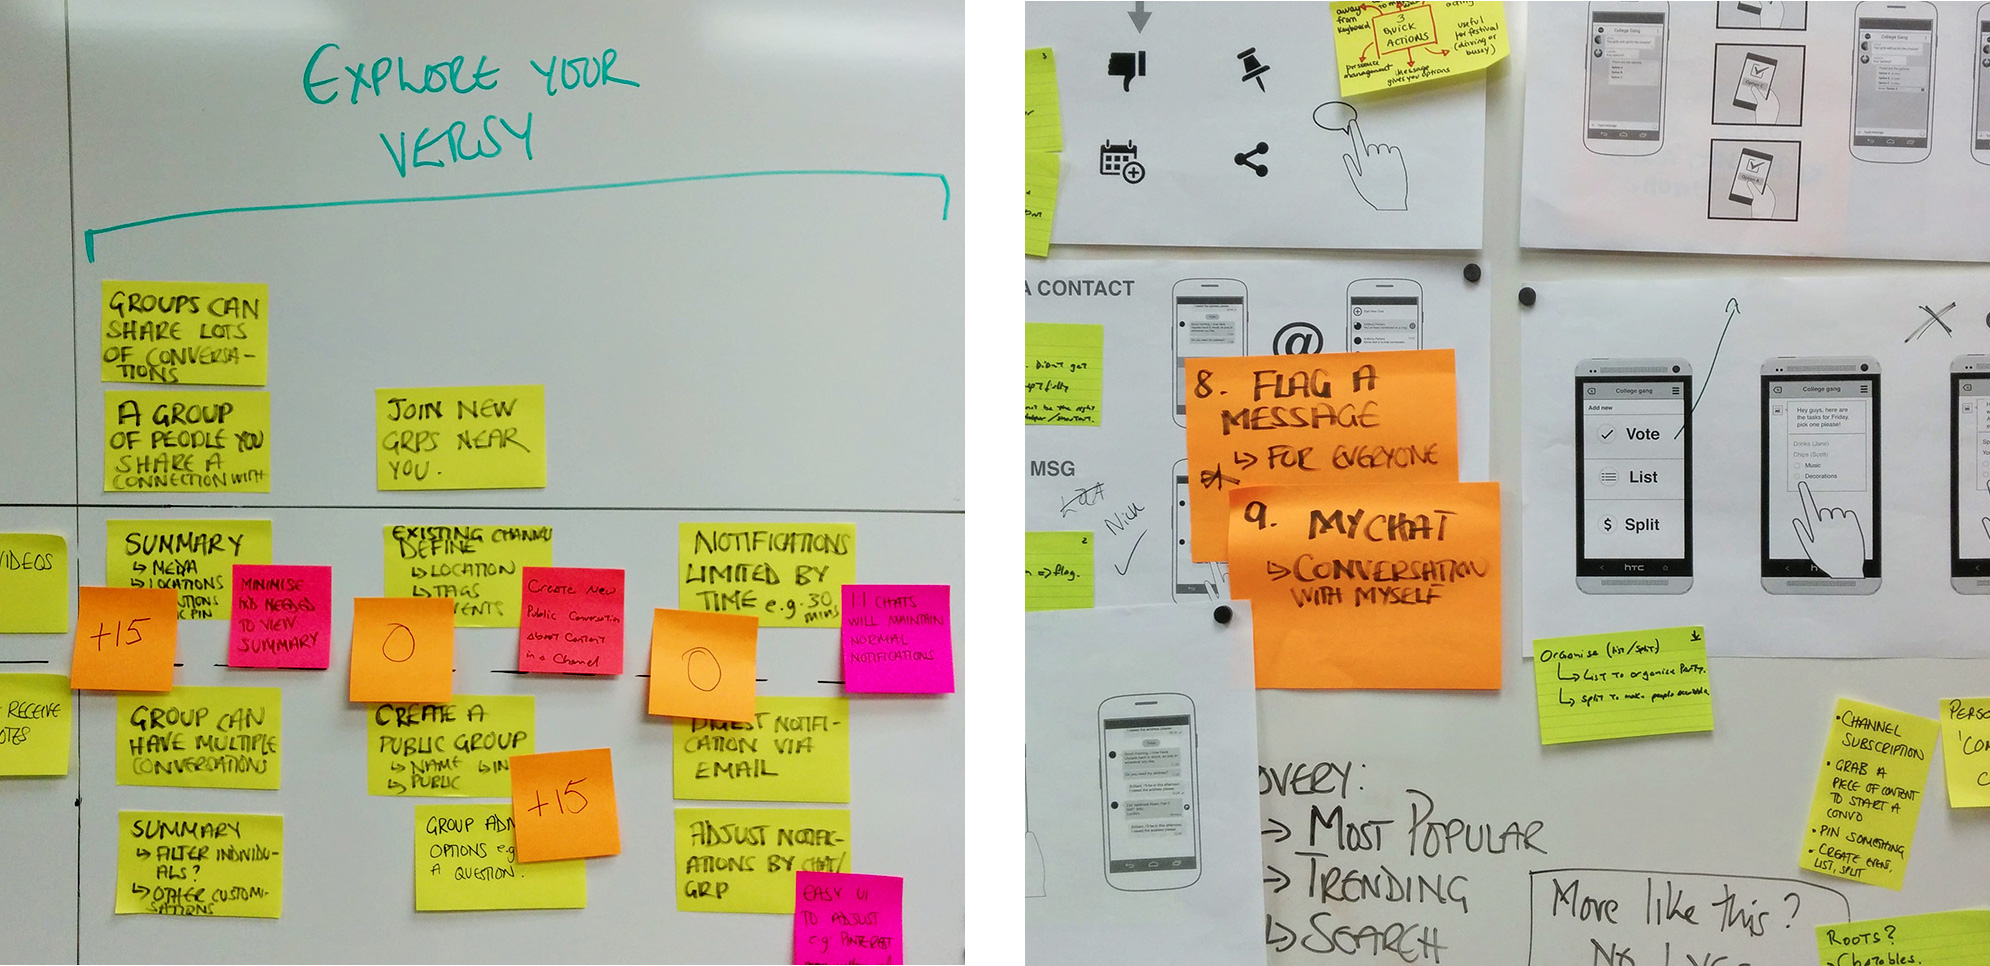 EXPLORE YOUR
VERSY
GROUPS CAN
SHARE LOTS
OF CONVERSA-
TIONS
A GROUP
OF PEOPLE YOU
SHARE A
CONNECTION WITH
JOIN NEW
GRPS NEAR
YOU.
VIDEOS
SUMMARY
↳ MEDIA
↳ LOCATIONS
PIN
MINIMISE
NEEDED
TO VIEW
SUMMARY
+15
EXISTING CHANNEL
DEFINE
↳ LOCATION
↳ TAGS
Create New
Public Conversation
About Content
in a Channel
0
NOTIFICATIONS
LIMITED BY
TIME e.g. 30
MINS
1:1 CHATS
WILL MAINTAIN
NORMAL
NOTIFICATIONS
0
RECEIVE
GROUP CAN
HAVE MULTIPLE
CONVERSATIONS
CREATE A
PUBLIC GROUP
↳ NAME ↳ IN
↳ PUBLIC
+15
DIGEST NOTIFI-
CATION VIA
EMAIL
SUMMARY
↳ FILTER INDIVIDU-
ALS?
↳ OTHER CUSTOMI-
SATIONS
GROUP ADM
OPTIONS e.g.
A QUESTION.
ADJUST NOTIFIC-
ATIONS BY CHAT/
GRP
EASY UI
TO ADJUST
e.g. PINTEREST
away
from
keyboard
3
QUICK
ACTIONS
useful
for festival
(driving or
busy)
presence
management
Message
gives you options
College Gang
College Gang
Option A
A CONTACT
@
Didn't get
8. FLAG A
MESSAGE
↳ FOR EVERYONE
MSG
Nick
=> flag.
9. MY CHAT
↳ CONVERSATION
WITH MYSELF
College gang
Add new
Vote
List
$ Split
hTC
College gang
Hey guys, here are
the tasks for Friday,
pick one please!
Drinks (Jane)
Chips (Scott)
Music
Decorations
hTC
Organise (list/split)
↳ List to organise Party.
↳ split to make people
OVERY:
→ MOST POPULAR
→ TRENDING
↳ SEARCH
• CHANNEL
SUBSCRIPTION
• GRAB A
PIECE OF CONTENT
TO START A
CONVO
• PIN SOMETHING
• CREATE EVENT,
LIST, SPLIT
More like this?
ROOTS?